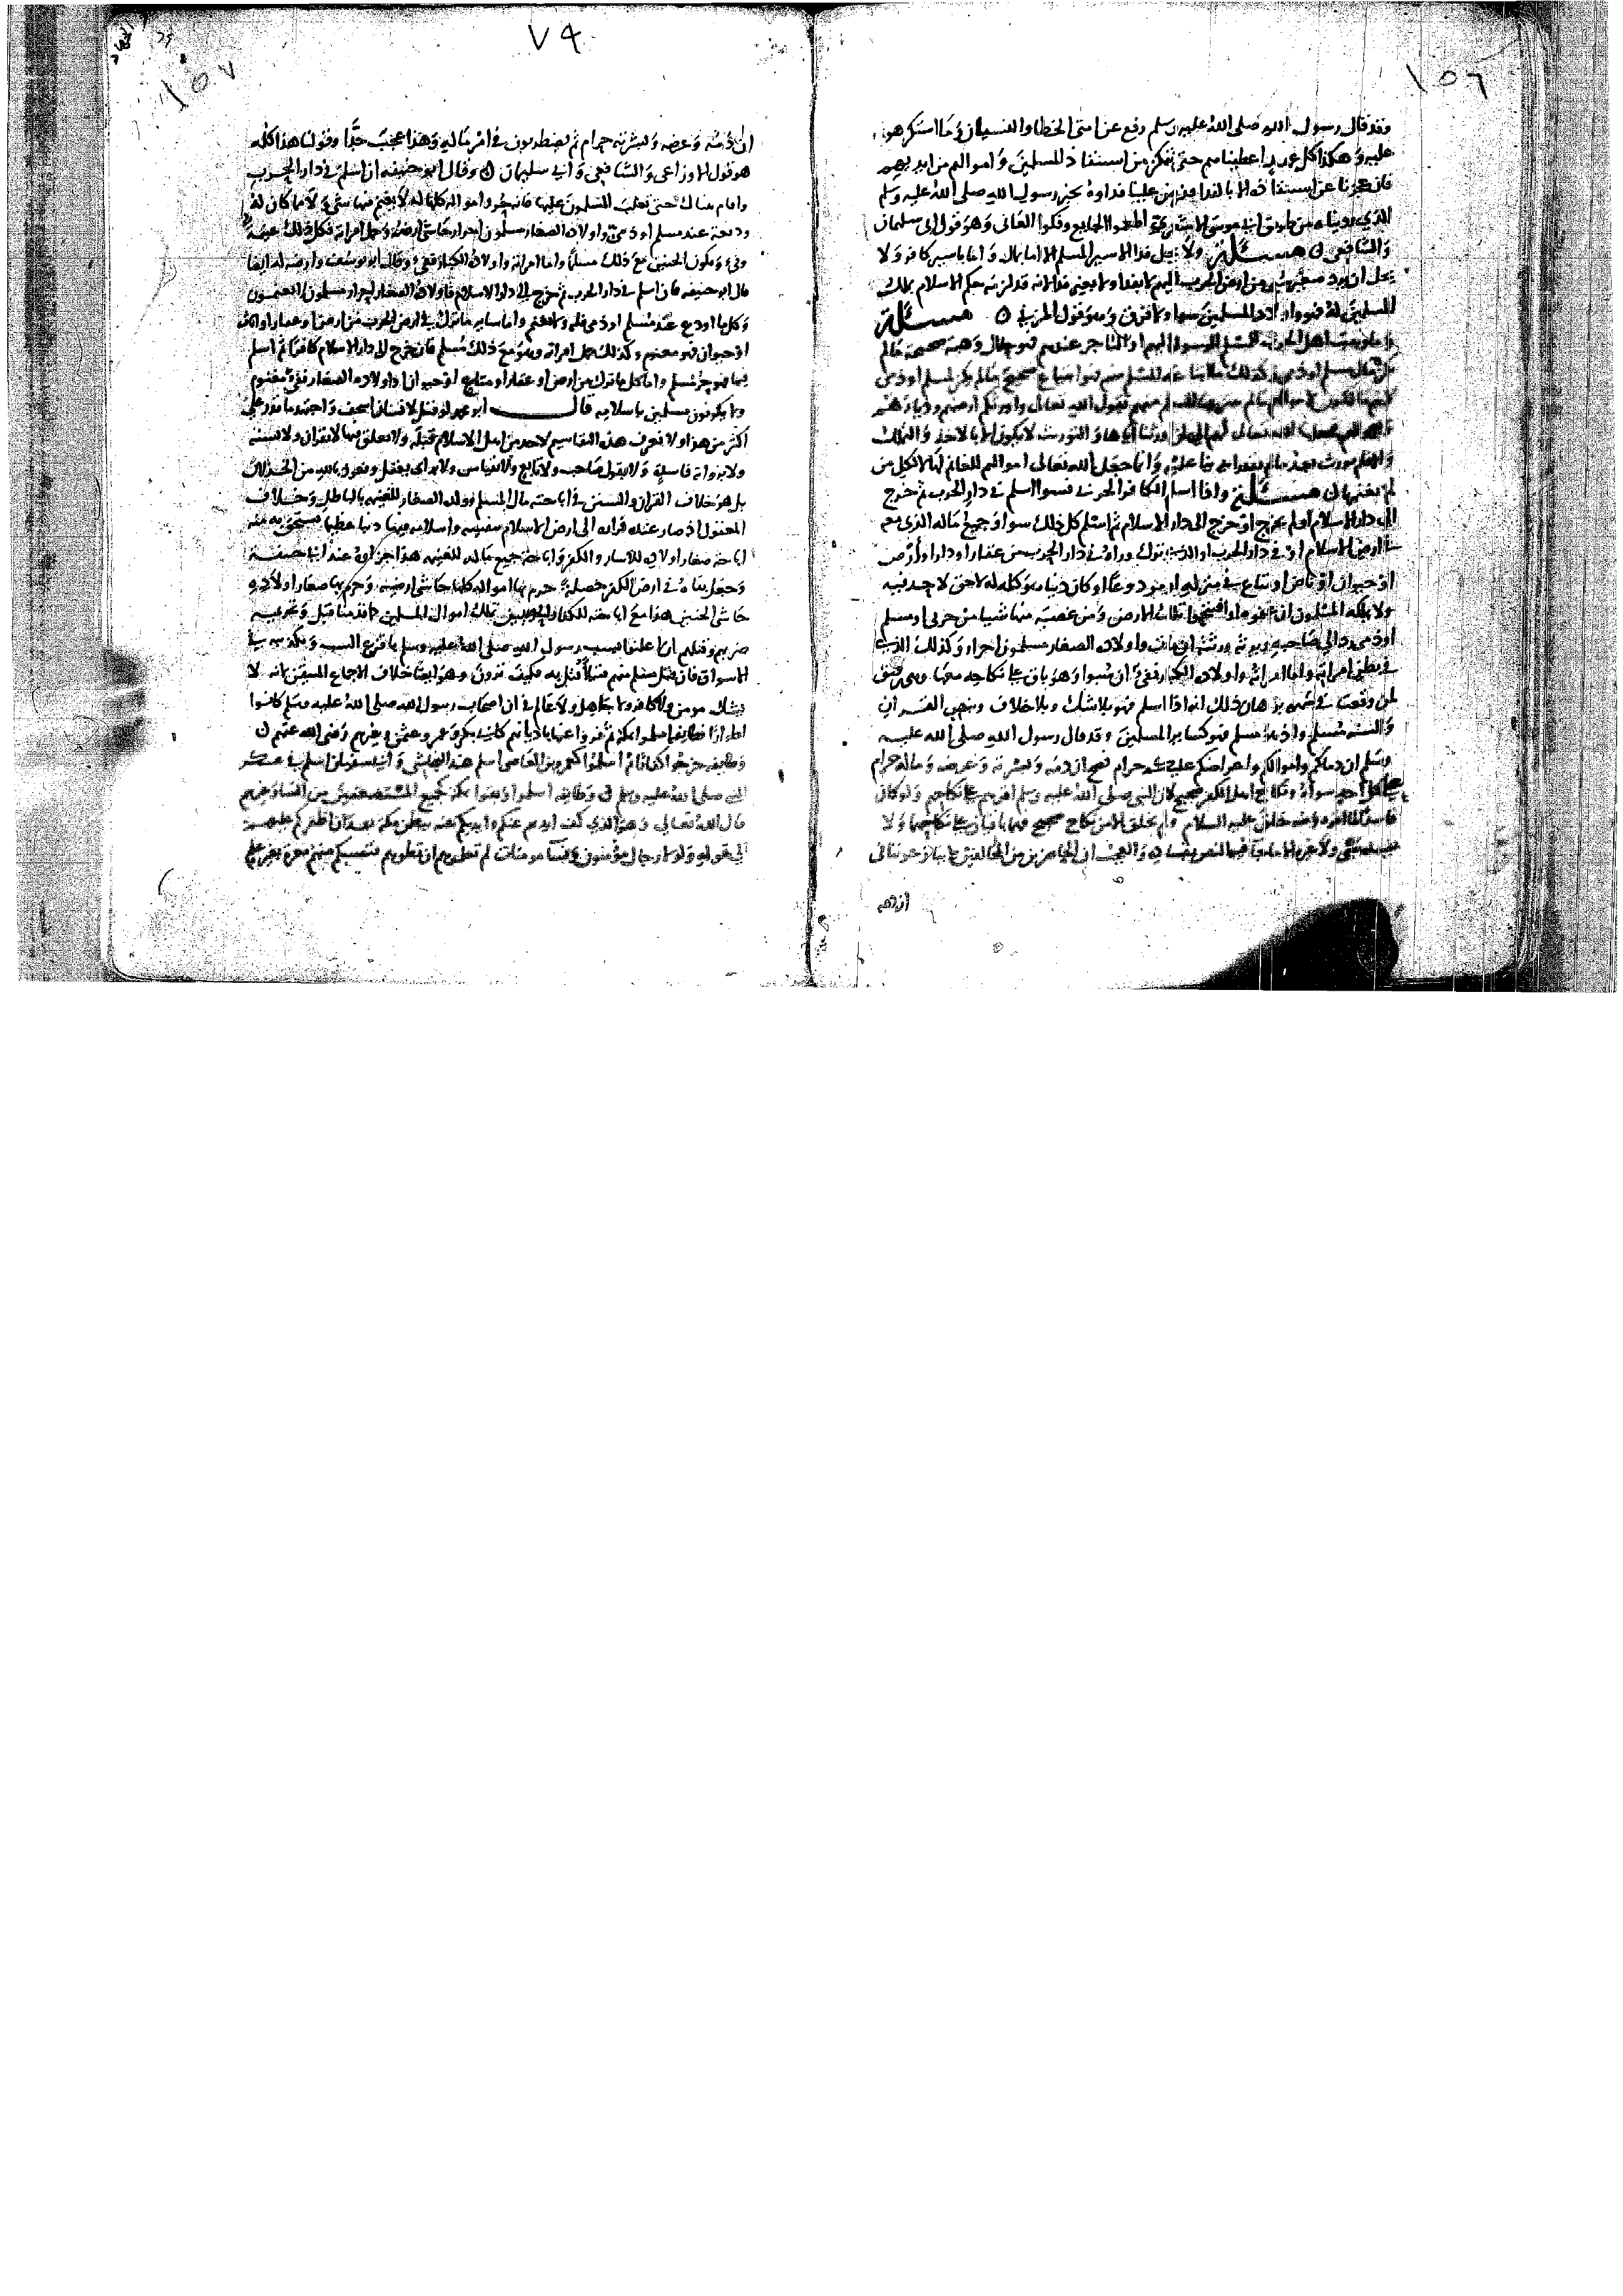 ٧٩
١٥٦
وقد قال رسول الله صلى الله عليه وسلم رفع عن امتي الخطا والنسيان وما استكرهوا
عليه وهكذا كل عهد اعطيناهم حتى نتمكن من استنقاذ المسلمين واموالهم من ايديهم
فان عجزنا عن استنقاذه الا بالفدا ففرض علينا فداوه بخبر رسول الله صلى الله عليه وسلم
الذي رويناه من طريق ابي موسى الاشعري اطعموا الجايع وفكوا العاني وهو قول ابي سليمان
والشافعي مسئلة ولا يحل فدا الاسير المسلم الا اما بمال واما باسير كافر ولا
يحل ان يرد صغير سبي من ارض الحرب اليهم لا بفدا ولا بغير فدا لانه قد لزمه حكم الاسلام بملك
المسلمين له فهو واولاد المسلمين سوا ولا فرق وهو قول المزني مسئلة
وما وهب اهل الحرب للمسلم الرسول اليهم او التاجر عندهم فهو حلال وهبة صحيحة مالم
يكن مال مسلم او ذمي وكذلك ما ابتاعه المسلم منهم فهو ابتياع صحيح مالم يكن لمسلم او ذمي
لانهم مالكون لاموالهم مالم ينتزعها المسلم منهم بقول الله تعالى واورثكم ارضهم وديارهم
واموالهم فجعلها الله تعالى لهم الى ان اورثنا اياها والتوريث لا يكون الا بالاخذ والتملك
لم يغنمها مسئلة واذا اسلم الكافر الحربي فسوا اسلم في دار الحرب ثم خرج
الى دار الاسلام او لم يخرج او خرج الى دار الاسلام ثم اسلم كل ذلك سوا وجميع ماله الذي معه
في ارض الاسلام او في دار الحرب او الذي ترك وراه في دار الحرب من عقار او دار او ارض
او حيوان او ناض او متاع في منزله او مودوعا او كان دينا هو كله له لا حق لاحد فيه
ولا يملكه المسلمون ان غنموه او افتتحوا تلك الارض ومن غصبه منها شيا من حربي او مسلم
او ذمي رد الى صاحبه ويرثه ورثته ان مات واولاده الصغار مسلمون احرار وكذلك الذي
في بطن امراته واما امراته واولاده الكبار ففي ان سبوا وهو باق على نكاحه معها وهي رقيق
لمن وقعت في سهمه برهان ذلك انه اذا اسلم فهو بلا شك وبلا خلاف وبنص القران
والسنه مسلم واذ هو مسلم فهو كساير المسلمين وقد قال رسول الله صلى الله عليه
وسلم ان دماكم واموالكم واعراضكم عليكم حرام فصح ان دمه وبشرته وعرضه وماله حرام
على كل احد سواه ونكاح اهل الكفر صحيح لان النبي صلى الله عليه وسلم اقرهم على نكاحهم ولو كان
فاسدا لما اقره ومنه خلق عليه السلام ولم يخلق الا من نكاح صحيح فهما باقيان على نكاحهما ولا
والعجب ان الحاضرين من المخالفين لنا
ان دمه
١٥٧
ان دمه وعرضه وبشرته حرام ثم يضطربون في امر ماله وهذا عجب جدا وقولنا هذا كله
هو قول الاوزاعي والشافعي وابي سليمان وقال ابو حنيفه ان اسلم في دار الحرب
واقام هنالك حتى تغلب المسلمون عليها فانه حر وامواله كلها له لا يغنم منها شي ولا ما كان له
وديعة عند مسلم او ذمي واولاده الصغار مسلمون احرار حاشى ارضه وحمل امراته فكل ذلك غنيمة
وفي ويكون الجنين مع ذلك مسلما واما امراته واولاده الكبار ففي وقال ابو يوسف وارضه له ايضا
قال ابو حنيفه فان اسلم في دار الحرب ثم خرج الى دار الاسلام فاولاده الصغار احرار مسلمون لا يغنمون
وكل ما اودع عند مسلم او ذمي فله ولا يغنم واما ساير ما ترك في ارض الحرب من ارض او عقار او اثاث
او حيوان فهو مغنوم وكذلك حمل امراته وهو مع ذلك مسلم فان خرج الى دار الاسلام كافرا ثم اسلم
فيها فهو حر مسلم واما كل ما ترك من ارض او عقار او متاع او حيوان او اولاده الصغار ففي مغنوم
ولا يكونون مسلمين باسلامه قال ابو محمد لو قيل لانسان اسخف واجتهد ما قدر على
اكثر من هذا ولا نعرف هذه التقاسيم لاحد من اهل الاسلام قبله ولا تعلق فيها لا بقران ولا بسنه
ولا برواية فاسدة ولا بقول صاحب ولا تابع ولا بقياس ولا براي يعقل ونعوذ بالله من الخذلان
بل هو خلاف القران والسنن في اباحته مال المسلم وولده الصغار للغنيمه بالباطل وخلاف
المعقول اذ صار عنده فراره الى ارض الاسلام بنفسه واسلامه فيها ذنبا عظيما يستحق به منه
اباحة صغار اولاده للاسار والكفر واباحة جميع ماله للغنيمه هذا جزاوه عند ابي حنيفه
وجعل بقاه في ارض الكفر خصلة حرم بها امواله كلها حاشى ارضه وحرم بها صغار اولاده
حاشى الجنين هذا مع اباحته للكفار والحربيين تملك اموال المسلمين كما قدمنا قبل وتحريمه
ضربهم وقتلهم ان اعلنوا بسب رسول الله صلى الله عليه وسلم باقذع السب وتكذيبه في
الاسواق فان قتل مسلم منهم قتيلا قتل به فكيف ترون وهو ايضا خلاف الاجماع المتيقن لانه لا
يشك مومن ولا كافر ولا جاهل ولا عالم في ان اصحاب رسول الله صلى الله عليه وسلم كانوا
اطوارا فطايفه اسلموا بمكة ثم فروا عنها باديانهم كابي بكر وعمر وعثمن وغيرهم رضي الله عنهم
وطايفه خرجوا كفارا ثم اسلموا كعمرو بن العاصي اسلم عند النجاشي وابي سفيان اسلم في عسكر
النبي صلى الله عليه وسلم وطايفه اسلموا وبقوا بمكة كجميع المستضعفين من النسا وغيرهم
قال الله تعالى وهو الذي كف ايديهم عنكم وايديكم عنهم ببطن مكة من بعد ان اظفركم عليهم
الى قوله ولولا رجال مؤمنون ونسا مومنات لم تعلموهم ان تطوهم فتصيبكم منهم معرة بغير علم